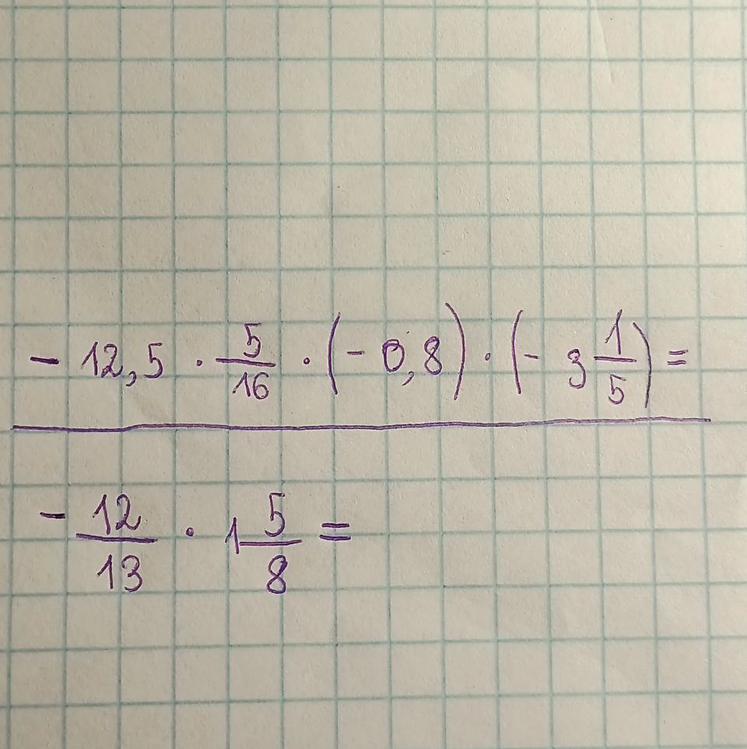 - 12,5 · 5/16 · (- 0,8) · (- 3 1/5) =
- 12/13 · 1 5/8 =